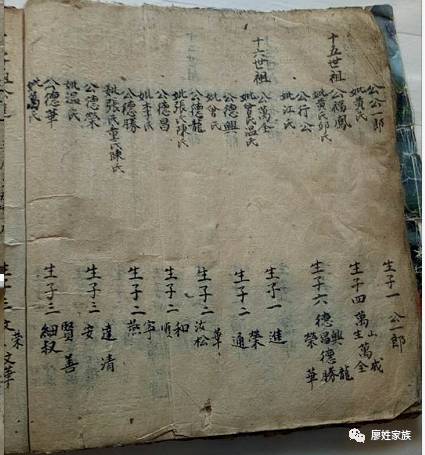 公公一郎
妣黄氏
十五世祖
公福鳳
妣黄氏邱氏
公行公
妣江氏
十六世祖
公萬全
妣曾氏温氏
公德興
妣曾氏
公德龍
妣張氏陳氏
公德昌
妣李氏
公德勝
妣張氏童氏陳氏
公德榮
妣温氏
公德華
妣萬氏
生子一 公一郎
生子四 萬山成
生萬全
生子六 德興龍
昌德勝
榮華
生子一 進
生子二 榮
通
生子二 華
汝松
生子二 和
順
生子二 寧
燕
生子三 達清
安
生子三 賢善
細叔
榮
文華
廖姓家族